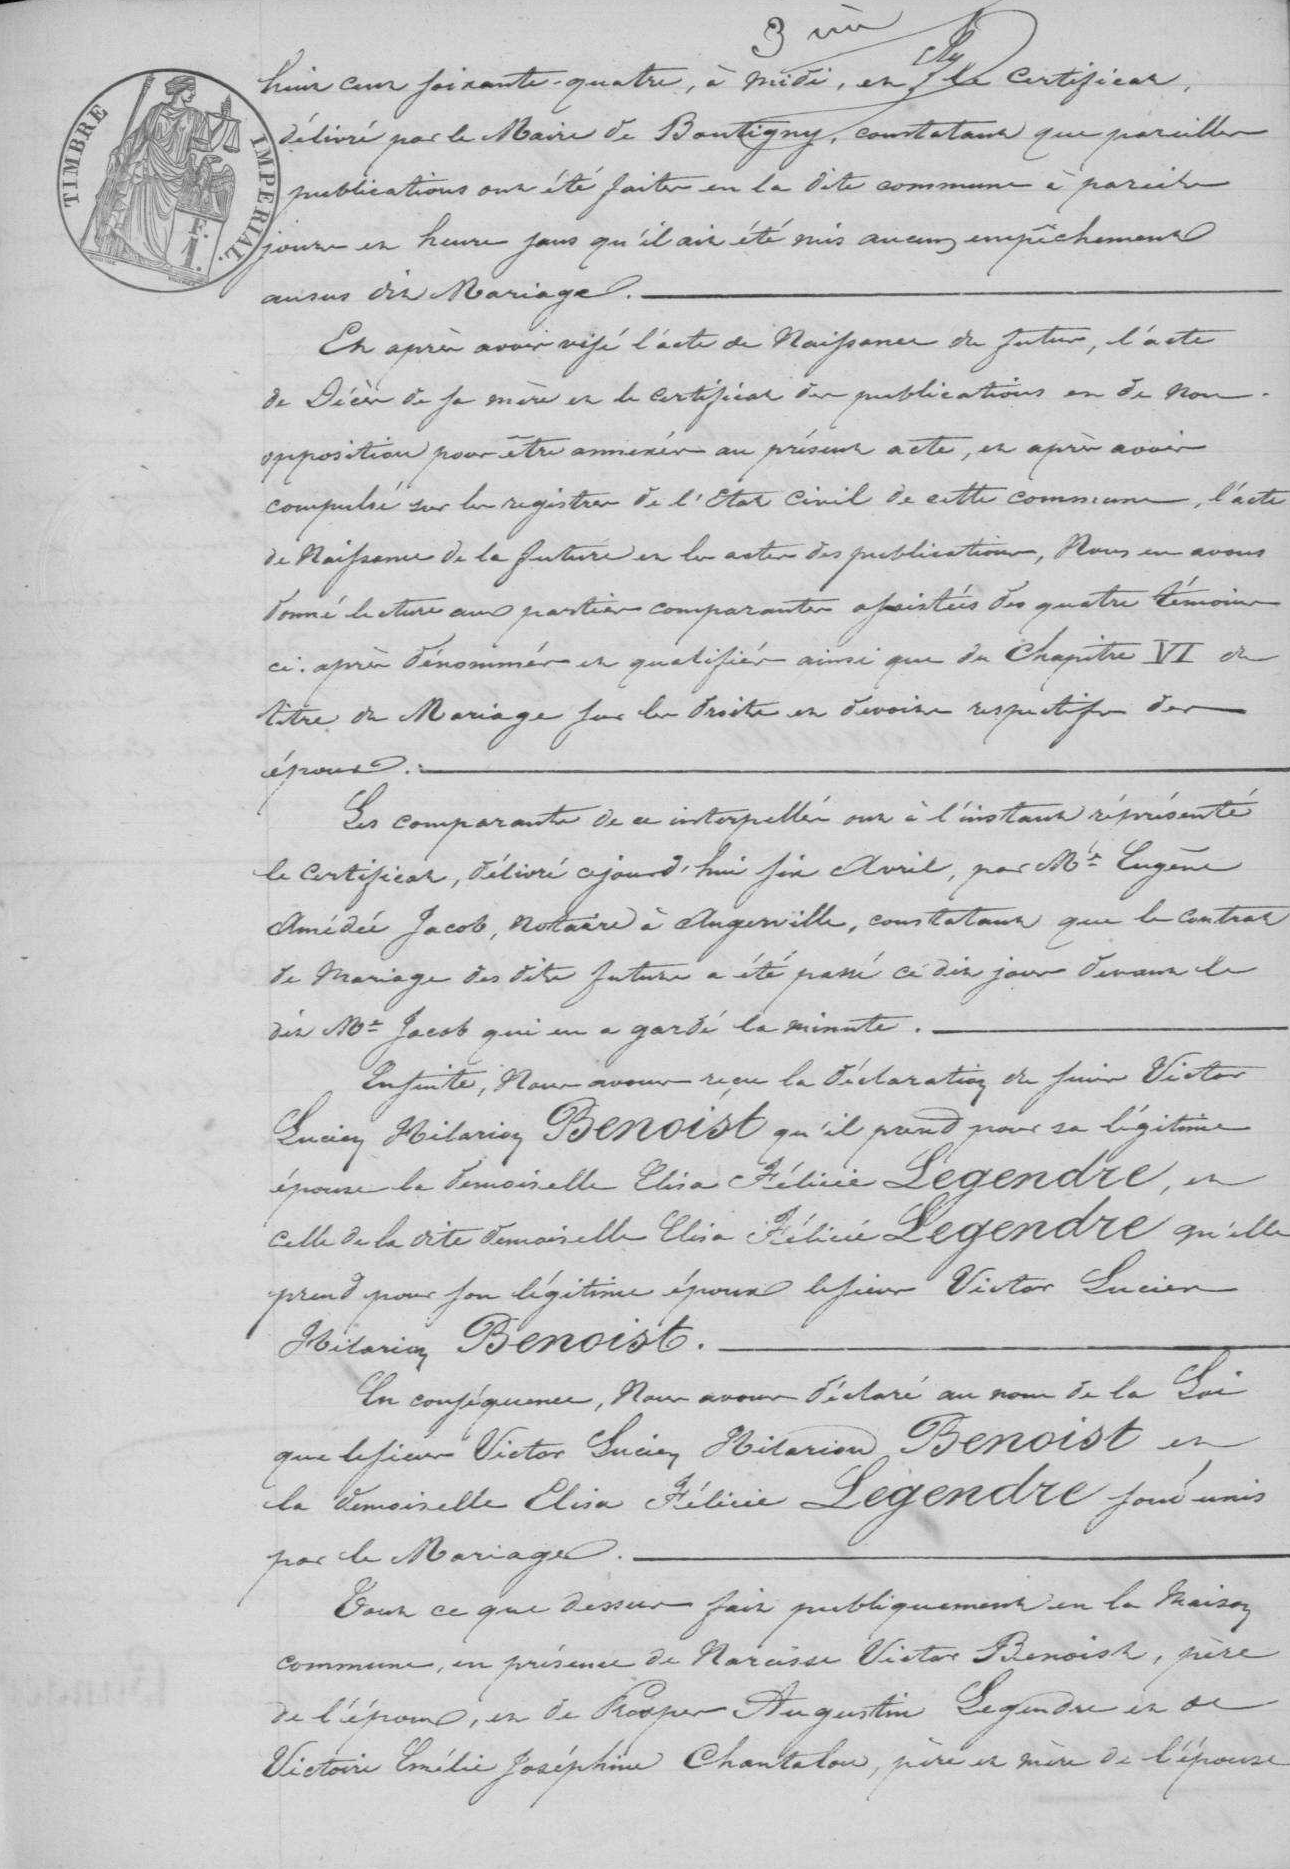 3 ème
TIMBRE IMPERIAL.
F. 1.
huit cent soixante-quatre, à midi, et le certificat,
délivré par le Maire de Boutigny, constatant que pareilles
publications ont été faites en la dite commune à pareils
jours et heure sans qu'il ait été mis aucun empêchement
au sus dit Mariage.
Et après avoir visé l'acte de Naissance du futur, l'acte
de Décès de sa mère et le certificat des publications et de non-
opposition pour être annexés au présent acte, et après avoir
compulsé sur les registres de l'Etat Civil de cette commune, l'acte
de Naissance de la future et les actes des publications, Nous en avons
donné lecture aux parties comparantes assistées des quatre témoins
ci-après dénommés et qualifiés ainsi que du Chapitre VI du
titre du Mariage sur les droits et devoirs respectifs des
époux.
Les comparants de ce interpellés ont à l'instant réprésenté
le certificat, délivré cejourd'hui six Avril, par Me Eugène
Amédée Jacob, Notaire à Angerville, constatant que le contrat
de Mariage des dits futurs a été passé ce dit jour devant le
dit Me Jacob qui en a gardé la minute.
Ensuite, Nous avons reçu la déclaration du sieur Victor
Lucien Hilarion Benoist qu'il prend pour sa légitime
épouse la demoiselle Elisa Félicie Legendre, et
celle de la dite demoiselle Elisa Félicie Legendre qu'elle
prend pour son légitime époux le sieur Victor Lucien
Hilarion Benoist.
En conséquence, Nous avons déclaré au nom de la Loi
que le sieur Victor Lucien Hilarion Benoist et
la demoiselle Elisa Félicie Legendre sont unis
par le Mariage.
Tout ce que dessus fait publiquement en la Maison
commune, en présence de Narcisse Victor Benoist, père
de l'époux, et de Prosper Augustin Legendre et de
Victoire Emélie Joséphine Chantalou, père et mère de l'épouse